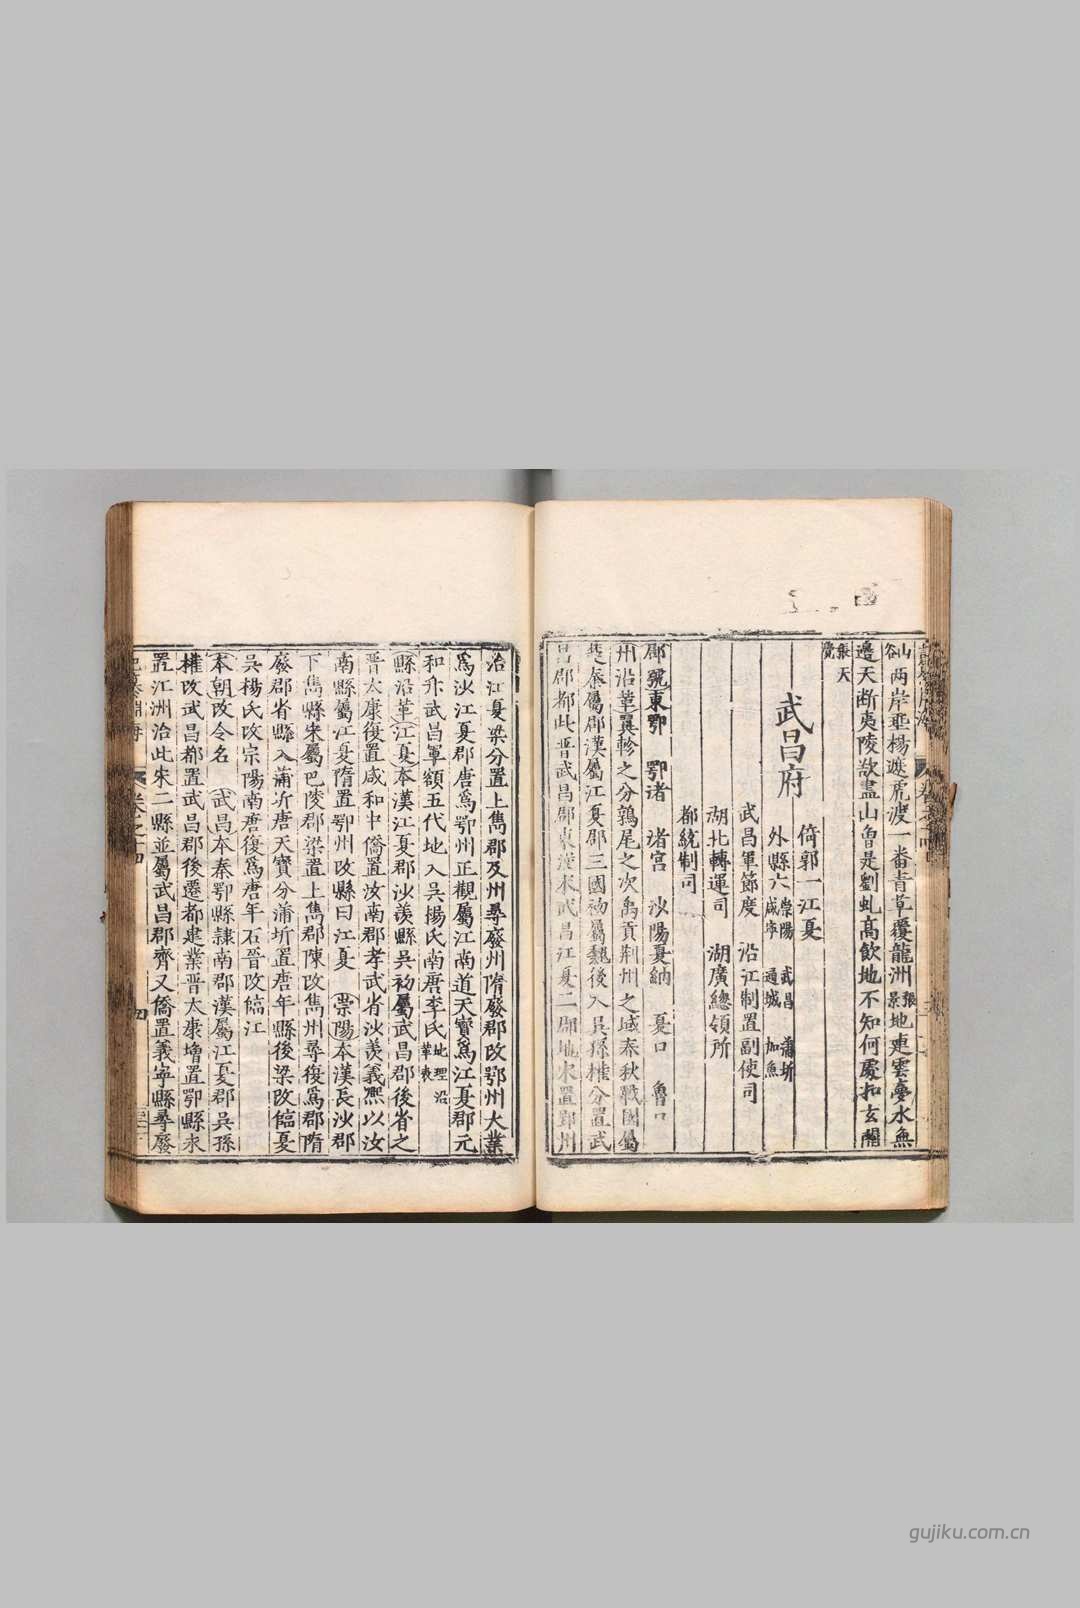 山谷兩岸垂楊遮虎渡一番青草覆龍洲張景地連雲夢水無
邊天断夷陵欲盡山魯是劉虬高飲地不知何處扣玄關
張天覺
武昌府
倚郭一江夏
外縣六崇陽 武昌 蒲圻 咸寧 通城 加魚
武昌軍節度 沿江制置副使司
湖北轉運司 湖廣總領所
都統制司
郡號東鄂 鄂渚 渚宮 沙陽夏納 夏口 魯口
州沿革翼軫之分鶉尾之次禹貢荆州之域春秋戰國屬
楚秦屬郡漢屬江夏郡三國初屬魏後入吳孫權分置武
昌郡都此晋武昌郡東晋末武昌江夏二郡地宋置郢州
治江夏梁分置上雋郡及州尋廢州隋廢郡改鄂州大業
爲沙江夏郡唐爲鄂州正觀屬江南道天寳爲江夏郡元
和升武昌軍額五代地入吳揚氏南唐李氏地理沿革表
縣沿革江夏本漢江夏郡沙羨縣吳初屬武昌郡後省之
晋太康復置咸和中僑置汝南郡孝武省沙羨義熈以汝
南縣屬江夏隋置鄂州改縣曰江夏 崇陽本漢長沙郡
下雋縣宋屬巴陵郡梁置上雋郡陳改雋州尋復爲郡隋
廢郡省縣入蒲圻唐天寳分蒲圻置唐年縣後梁改臨夏
吳楊氏改宗陽南唐復爲唐年石晋改臨江
本朝改今名 武昌本秦鄂縣隷南郡漢屬江夏郡吳孫
權改武昌都置武昌郡後遷都建業晋太康增置鄂縣永
置江洲治此宋二縣並屬武昌郡齊又僑置義寧縣尋廢
記纂淵海 卷之十四